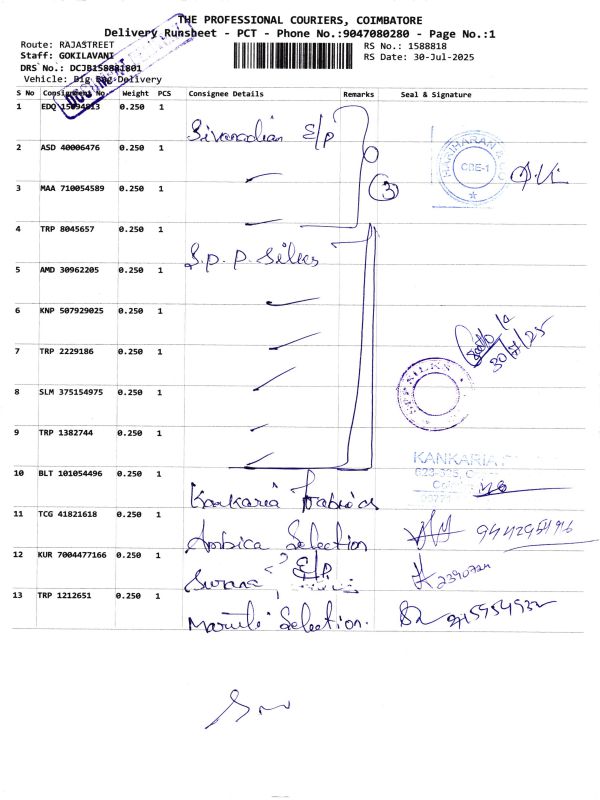 THE PROFESSIONAL COURIERS, COIMBATORE
Delivery Runsheet - PCT - Phone No.:9047080280 - Page No.:1
Route: RAJASTREET RS No.: 1588818
Staff: GOKILAVANI RS Date: 30-Jul-2025
DRS No.: DCJB158881801
Vehicle: Big Bag Delivery
S No Consignment No. Weight PCS Consignee Details Remarks Seal & Signature
1 EDQ 15094813 0.250 1
2 ASD 40006476 0.250 1
HARIHARAN & CO
CBE-1
3 MAA 710054589 0.250 1 3
4 TRP 8045657 0.250 1 S.P.P. Silks
5 AMD 30962205 0.250 1
6 KNP 507929025 0.250 1
7 TRP 2229186 0.250 1
30/7/25
8 SLM 375154975 0.250 1
SPP SILKS
9 TRP 1382744 0.250 1
KANKARIA
10 BLT 101054496 0.250 1 Kankaria Fabrics
11 TCG 41821618 0.250 1 Ambica Selection
12 KUR 7004477166 0.250 1 E/P
13 TRP 1212651 0.250 1 Maruti Selection.